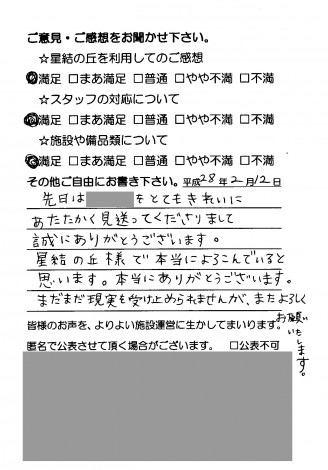 ご意見・ご感想をお聞かせ下さい。
☆星結の丘を利用してのご感想
満足 □まあ満足 □普通 □やや不満 □不満
☆スタッフの対応について
満足 □まあ満足 □普通 □やや不満 □不満
☆施設や備品類について
満足 □まあ満足 □普通 □やや不満 □不満
その他ご自由にお書き下さい。平成28年2月12日
先日は をとてもきれいに
あたたかく見送ってくださりまして
誠にありがとうございます。
星結の丘様で本当によろこんでいると
思います。本当にありがとうございます。
まだまだ現実も受け止められませんが、またよろしく
お願いいたします。
皆様のお声を、よりよい施設運営に生かしてまいります。
匿名で公表させて頂く場合がございます。 □公表不可